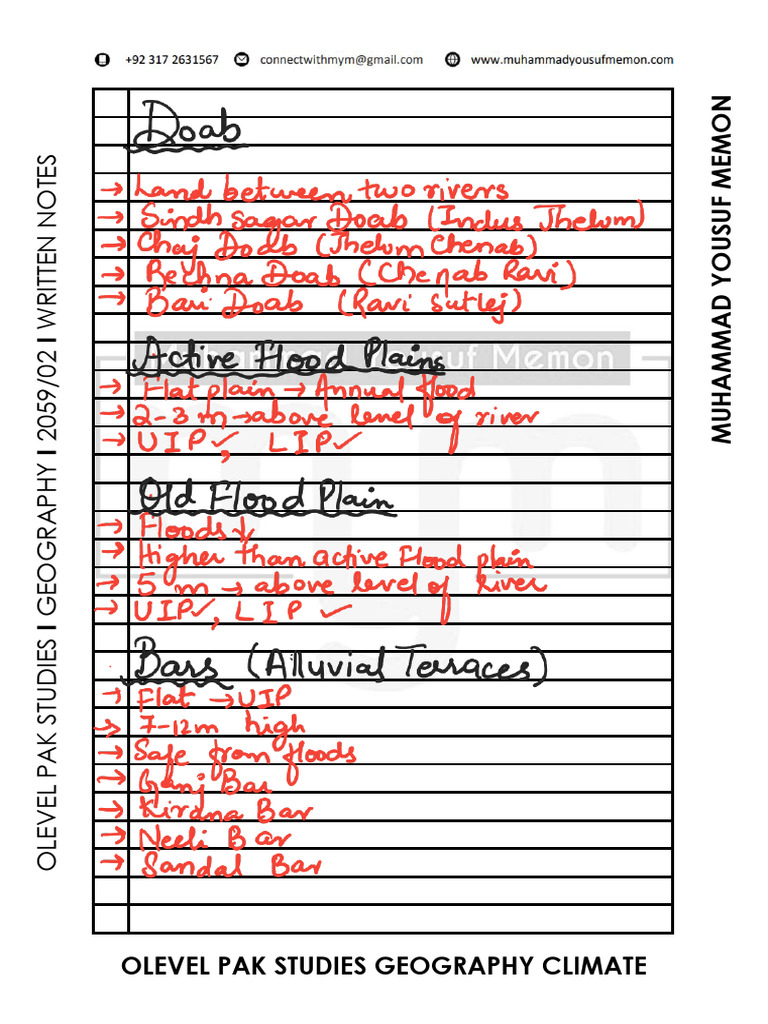 +92 317 2631567 connectwithmym@gmail.com www.muhammadyousufmemon.com
Doab
→ Land between two rivers
→ Sindh Sagar Doab (Indus Jhelum)
→ Chaj Doab (Jhelum Chenab)
→ Rechna Doab (Chenab Ravi)
→ Bari Doab (Ravi Sutlej)
Active Flood Plains
→ Flat plain → Annual flood
→ 2-3 m → above level of river
→ UIP✓, LIP✓
Old Flood Plain
→ Floods ↓
→ Higher than active Flood plain
→ 5 m → above level of River
→ UIP✓, LIP ✓
Bars (Alluvial Terraces)
→ Flat → UIP
→ 7-12m high
→ Safe from floods
→ Ganj Bar
→ Kirana Bar
→ Neeli Bar
→ Sandal Bar
OLEVEL PAK STUDIES GEOGRAPHY CLIMATE
OLEVEL PAK STUDIES I GEOGRAPHY I 2059/02 I WRITTEN NOTES
MUHAMMAD YOUSUF MEMON